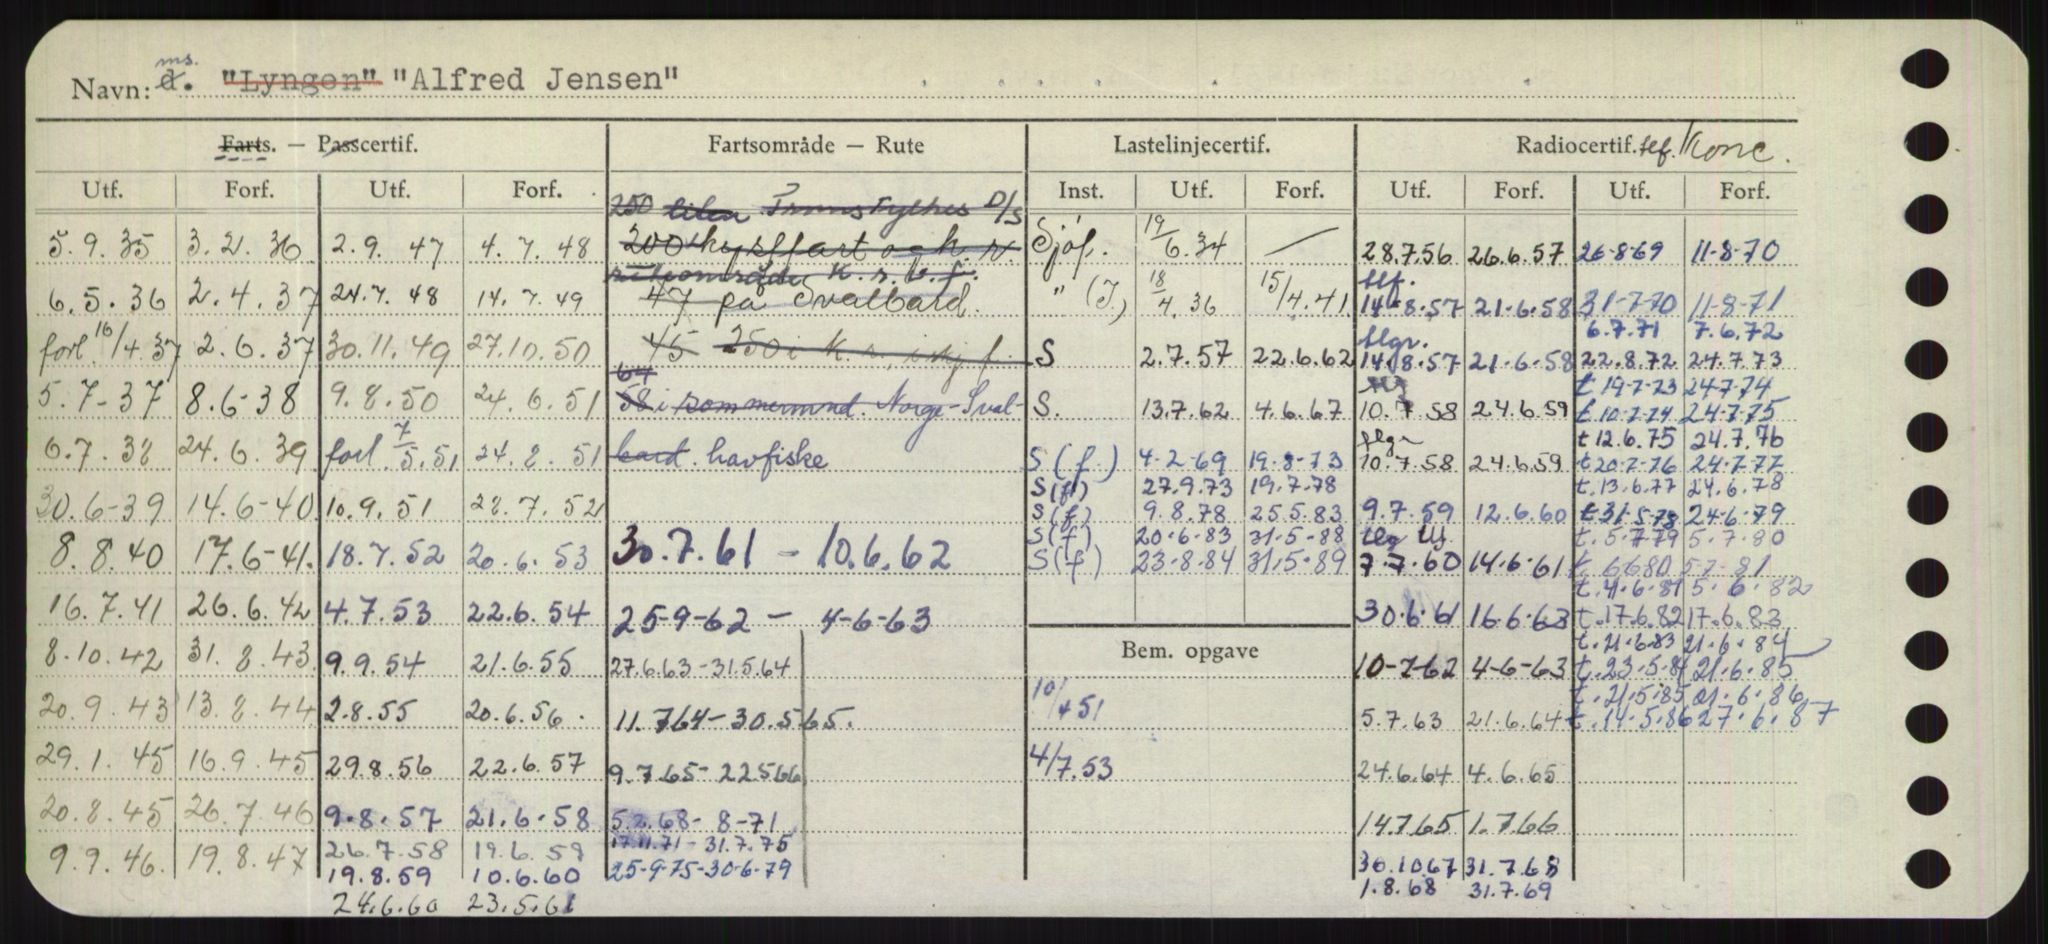 Navn: d. ms. "Lyngen" "Alfred Jensen"
Farts. — Passcertif. Fartsområde — Rute Lastelinjecertif. Radiocertif. tlf. Konc.
Utf. Forf. Utf. Forf. Inst. Utf. Forf. Utf. Forf. Utf. Forf.
250 Troms Fylkes D/S
5.9.35 3.2.36 2.9.47 4.7.48 200 kystfart og k. r. Sjöf. 19/6.34 — 28.7.56 26.6.57 26-8-69 11-8-70
k. r. tlf.
6.5.36 2.4.37 24.7.48 14.7.49 47 på Svalbard. " (I.) 18/4.36 15/4.41 14.8.57 21.6.58 31-7-70 11-8-71
tlgr. 6.7.71 7.6.72
forl. 16/4.37 2.6.37 30.11.49 27.10.50 45 250 i k. r. S 2.7.57 22.6.62 14.8.57 21.6.58 22.8.72 24.7.73
64 t 19-7-73 24-7-74
5.7-37 8.6-38 9.8.50 24.6.51 58 i sommermnd. Norge-Sval- S. 13.7.62 4.6.67 10.7.58 24.6.59 t. 10-7-74 24-7-75
tlgr t 12.6.75 24.7.76
6.7.38 24.6.39 forl. 7/5.51 24.8.51 bard. havfiske S (f.) 4-2-69 19-8-73 10.7.58 24.6.59 t 20-7-76 24-7-77
S (f) 27.9.73 19.7.78 t. 13.6.77 24.6.78
30.6-39 14.6-40 10.9.51 28.7.52 S (f) 9.8.78 25.5.83 9.7.59 12.6.60 t 31-5-78 24-6-79
S (f) 20-6-83 31-5-88 t. 5.7.79 5.7.80
8.8.40 17.6-41. 18.7.52 20.6.53 30.7.61 – 10.6.62 S (f) 23-8-84 31.5-89 7.7.60 14.6.61 t. 6.6.80 5.7-81
t. 4.6.81 5.6.82
16.7.41 26.6.42 4.7.53 22.6.54 25-9-62 – 4-6-63 30.6.61 16.6.63 t. 17.6.82 17.6.83
t. 21.6.83 21.6.84
8.10.42 31.8.43. 9.9.54 21.6.55 27.6.63-31.5.64 Bem. opgave 10-7-62 4-6-63 t. 23.5.84 21.6.85
t. 21.5.85 21.6.86
20.9.43 13.8.44 2.8.55 20.6.56. 11.764-30.565. 10/4 51 5.7.63 21.6.64 t. 14.5.86 27.6.87
29.1.45 16.9.45 29.8.56 22.6.57 9.7.65-22566 4/7.53 24.6.64 4.6.65
20.8.45 26.7.46 9.8.57 21.6.58 5.2.68- 8-71 14.7.65 1.7.66
17.11.71-31.7.75
9.9.46. 19.8.47 26.7.58 19.6.59 25-9-75-30-6-79 30.10.67 31.7.68
19.8.59 10.6.60 1.8.68 31.7.69
24.6.60 23.5.61